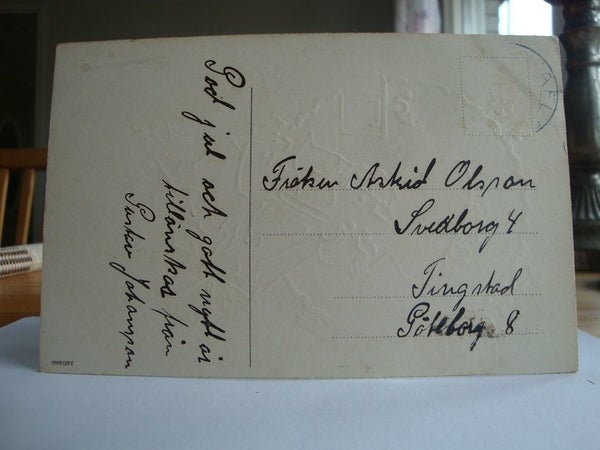 God jul och gott nytt år
tillönskas från
Gustav Johansson
Fröken Astrid Olsson
Svedborg 4
Tingstad
Göteborg 8
IMPORT